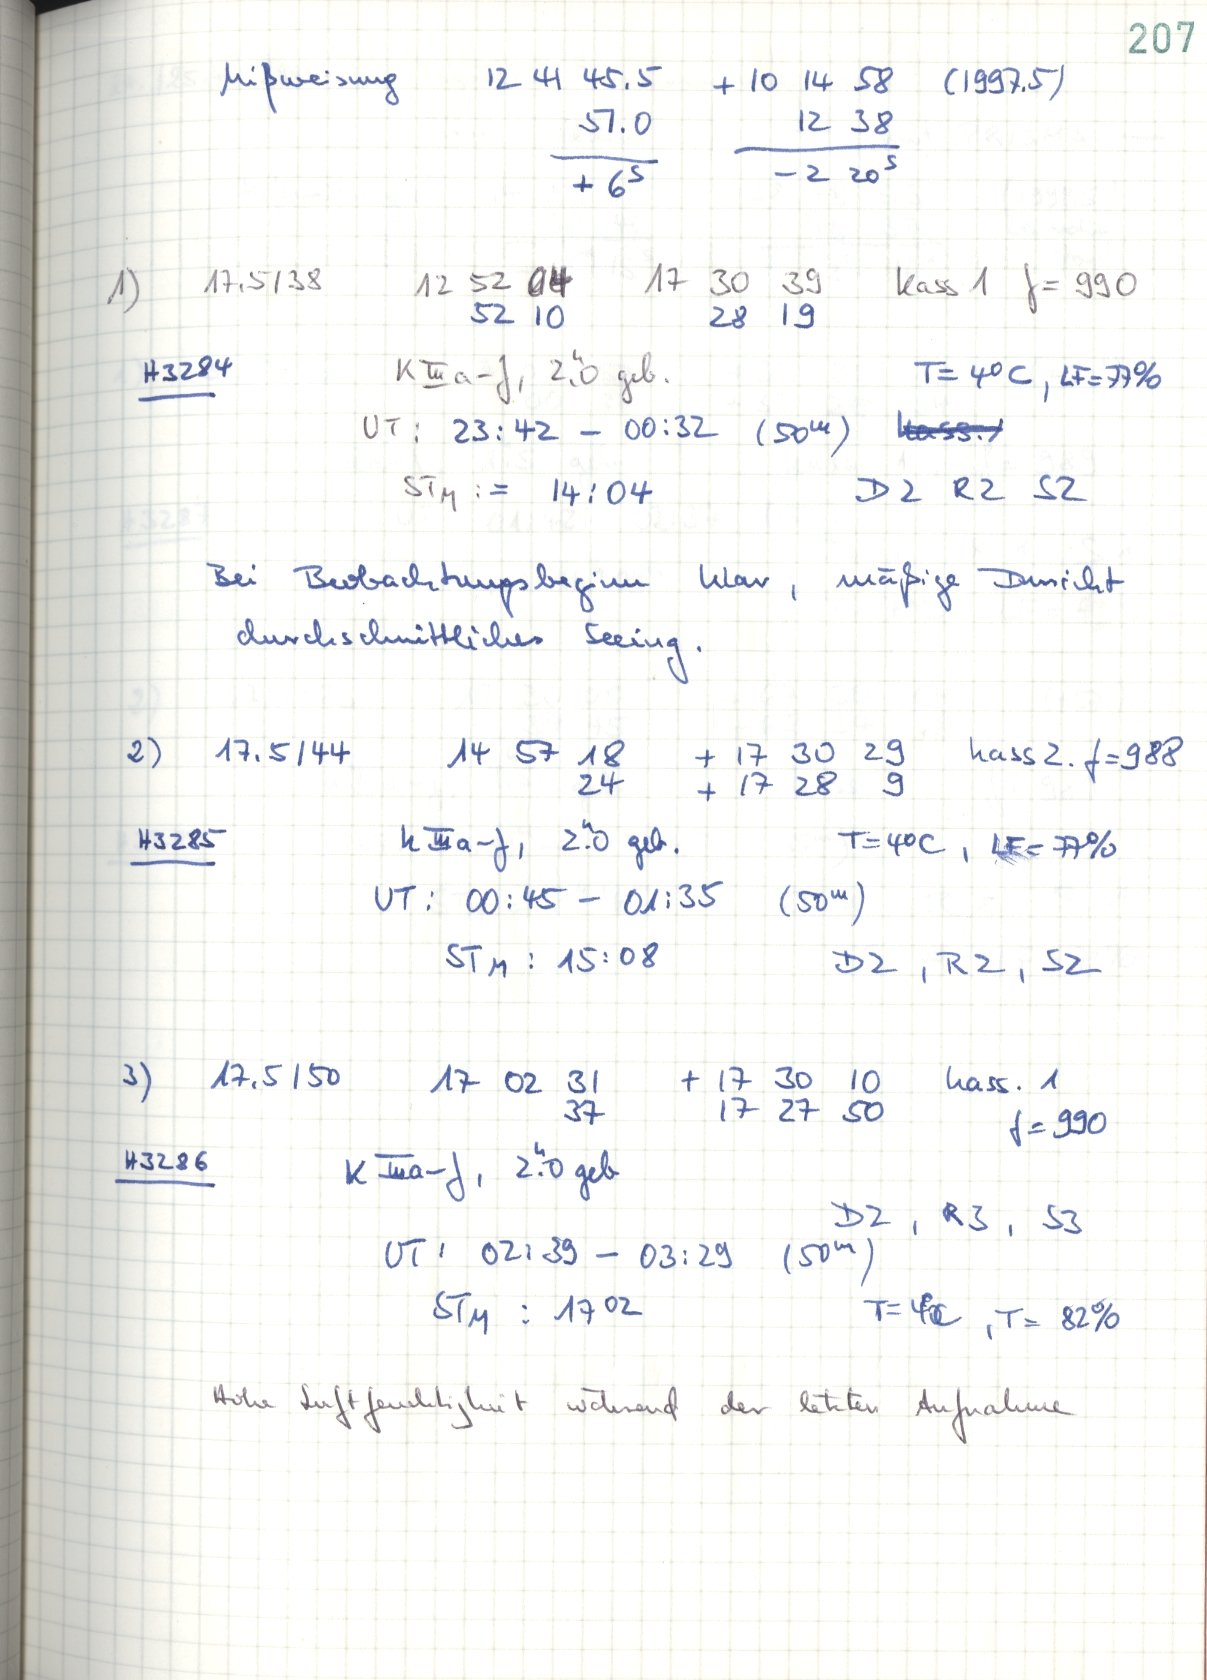 207
Mißweisung 12 41 45.5 +10 14 58 (1997.5)
51.0 12 38
+6ˢ -2 20ˢ
1) 17.5/38 12 52 04 17 30 39 Kass 1 f=990
52 10 28 19
H3284 K IIIa-J, 2.ʰ0 geb. T=4°C, LF=77%
UT: 23:42 – 00:32 (50ᵐ) Kass. 1
STM := 14:04 D2 R2 S2
Bei Beobachtungsbeginn klar, mäßige Dursicht
durchschnittliches Seeing.
2) 17.5/44 14 57 18 +17 30 29 Kass 2. f=988
24 +17 28 9
H3285 K IIIa-J, 2.ʰ0 geb. T=4°C, LF=77%
UT: 00:45 – 01:35 (50ᵐ)
STM: 15:08 D2, R2, S2
3) 17.5/50 17 02 31 +17 30 10 Kass. 1
37 17 27 50 f=990
H3286 K IIIa-J, 2.ʰ0 geb
D2, R3, S3
UT: 02:39 – 03:29 (50ᵐ)
STM: 17 02 T=4°C, T= 82%
Hohe Luftfeuchtigkeit während der letzten Aufnahme